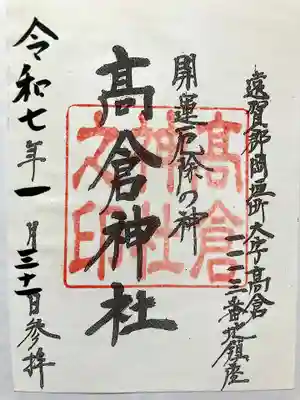 遠賀郡岡垣町大字高倉
一一一三番地鎮座
開運厄除の神
髙倉神社
髙倉
神社
之印
令和七年一月三十一日参拝